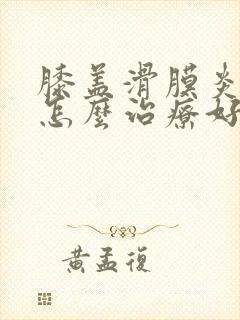 膝盖滑膜炎
怎麼治療好
黃孟復